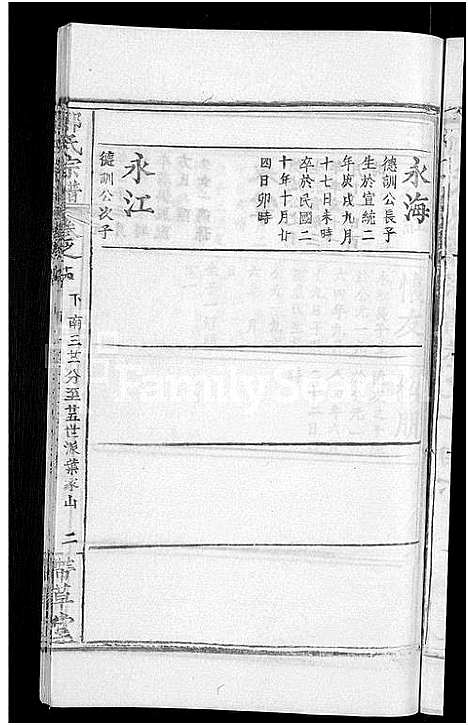 永海
德訓公長子
生於宣統二
年庚戌九月
十七日未時
卒於民國二
十年十月廿
四日卯時
永江
德訓公次子
氏宗譜
卷之
下南三廿分至廿五世派葉家山
二
草堂
FamilySearch